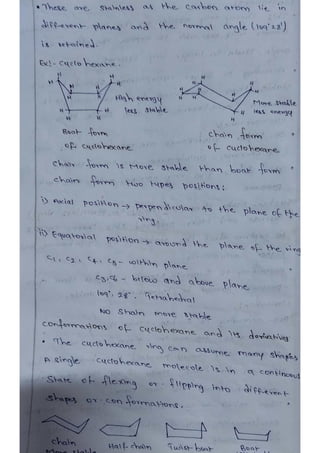 • These are stainless as the carbon atom lie in
different planes and the normal angle (109°28')
is retained.
Ex:- cyclo hexane.
High energy
less stable
More stable
less energy
Boat form
of cyclohexane
chain form
of cyclohexane
chair form is More stable than boat form
chain form two types positions:
i) Axial position → perpendicular to the plane of the
ring.
ii) Equatorial position → around the plane of the ring
C1, C2, C4, C5 - within plane
C3, C6 - below and above plane
109°, 28'. Tetrahedral
NO Strain more stable
conformations of cyclohexane and its derivatives
• The cyclohexane ring can assume many shapes
A single cyclohexane molecule is in a continuous
State of flexing or flipping into different
shapes or conformations.
chain Half-chain Twist-boat Boat